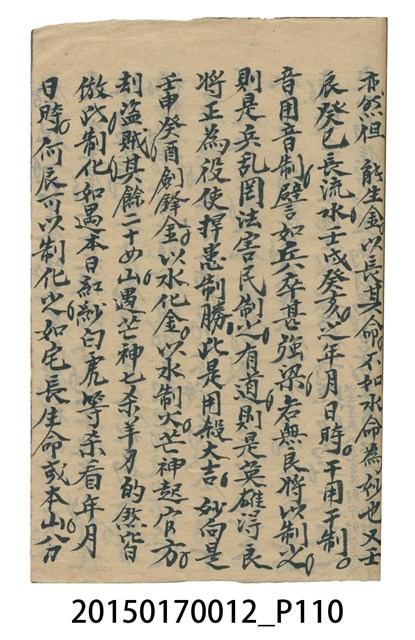 亦然但能生金以長其命不如水命為妙也又壬
辰癸巳長流水壬戌癸亥之年月日時干用干制
音用音制譬如兵卒甚強梁若無良將以制之
則是兵乱罔法害民制之有道則是英雄得良
將正為役使捍患制勝此是用殺大吉砂向是
壬申癸酉劍鋒金以水化金以水制火芒神起官方
刦盜賊其餘二十四山遇芒神七杀羊刃的煞皆
倣此制化如遇本日紅紗白虎等杀看年月
日時何辰可以制化之如宅長生命或本山分
20150170012_P110